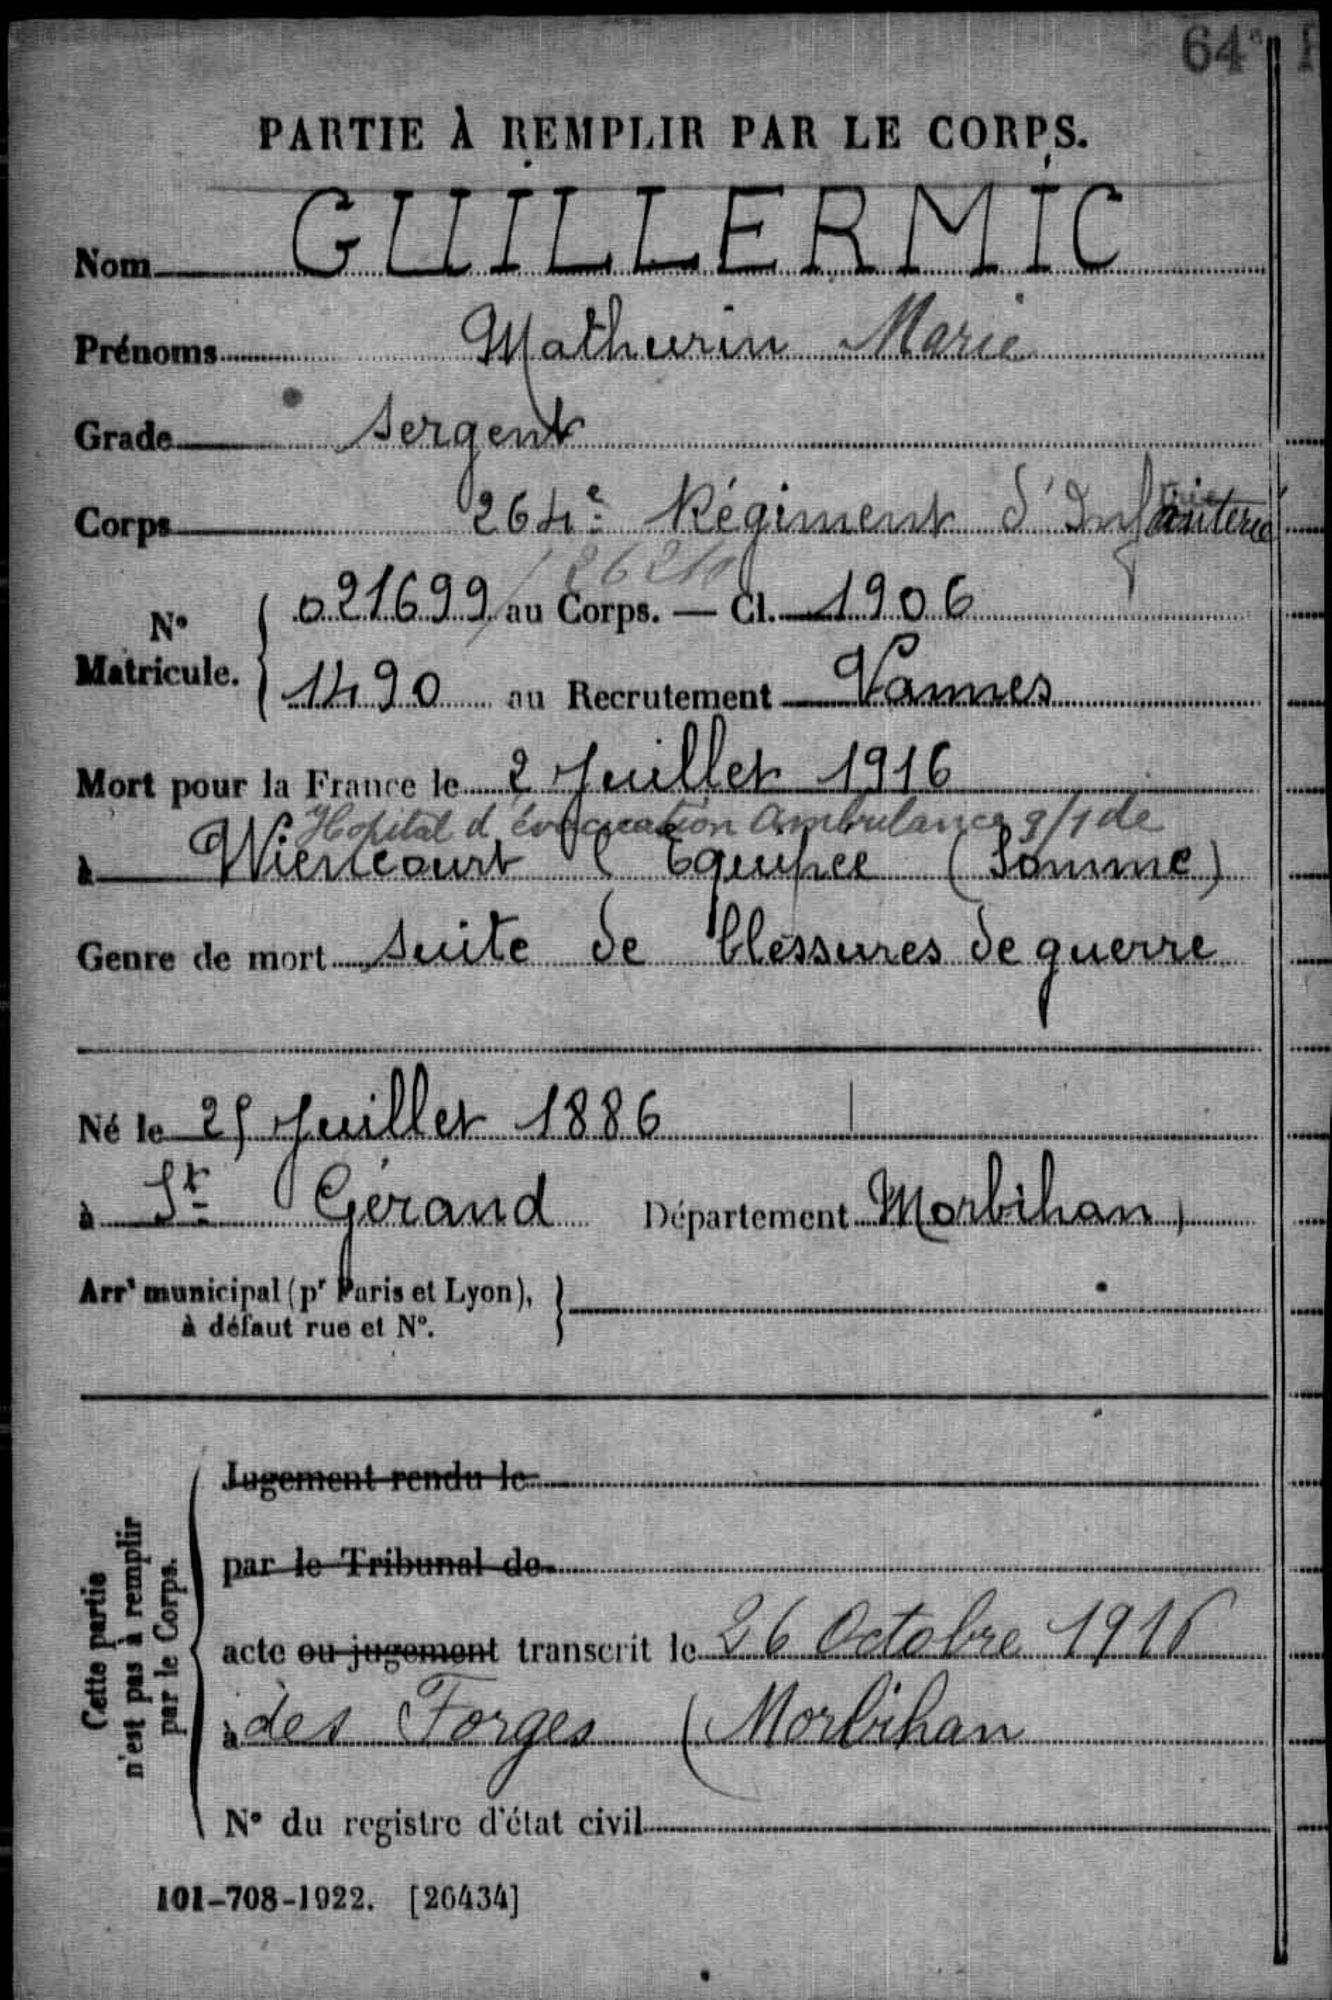 64e
PARTIE À REMPLIR PAR LE CORPS.
Nom GUILLERMIC
Prénoms Mathurin Marie
Grade Sergent
Corps 264e Régiment d'Infanterie
N° Matricule. 021699 au Corps. — Cl. 1906
1490 au Recrutement Vannes
Mort pour la France le 2 Juillet 1916
Hopital d'évacuation Ambulance 9/1 de
à Wiencourt l'Equipée (Somme)
Genre de mort Suite de blessures de guerre
Né le 25 Juillet 1886
à St Gérand Département Morbihan
Arrt municipal (pr Paris et Lyon),
à défaut rue et N°.
Cette partie
n'est pas à remplir
par le Corps.
Jugement rendu le
par le Tribunal de
acte ou jugement transcrit le 26 Octobre 1916
à des Forges (Morbihan
N° du registre d'état civil
101-708-1922. [26434]